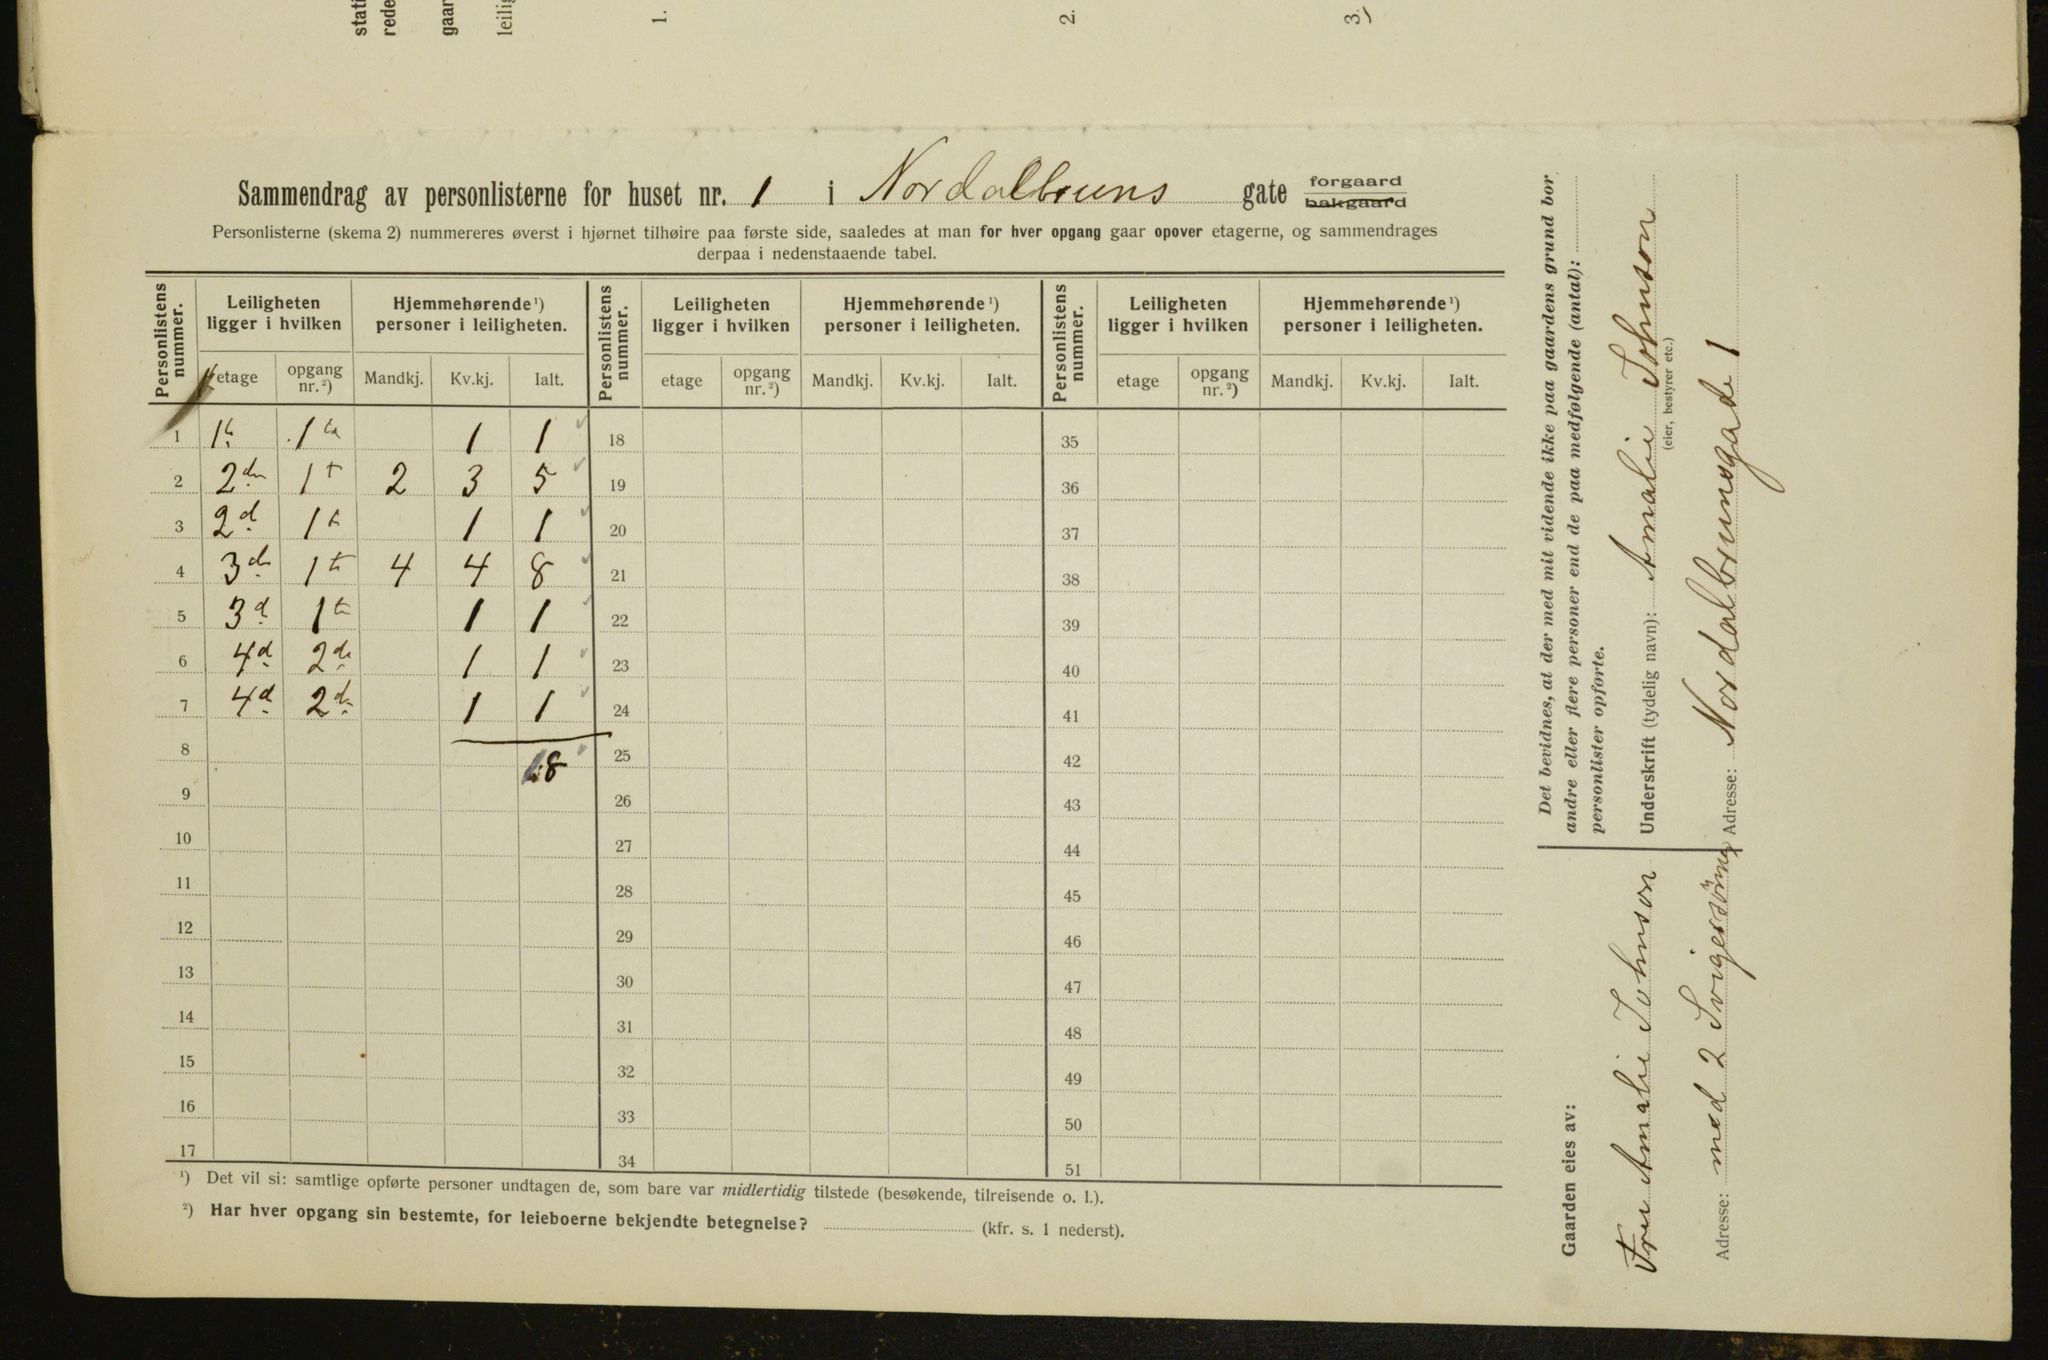 stati
rede
gaar
leilig
1.
2.
3.
Sammendrag av personlisterne for huset nr. 1 i Nordalbruns gate forgaard bakgaard
Personlisterne (skema 2) nummereres øverst i hjørnet tilhøire paa første side, saaledes at man for hver opgang gaar opover etagerne, og sammendrages
derpaa i nedenstaaende tabel.
Personlistens nummer. Leiligheten ligger i hvilken Hjemmehørende ¹) personer i leiligheten. Personlistens nummer. Leiligheten ligger i hvilken Hjemmehørende ¹) personer i leiligheten. Personlistens nummer. Leiligheten ligger i hvilken Hjemmehørende ¹) personer i leiligheten.
etage opgang nr.²) Mandkj. Kv.kj. Ialt. etage opgang nr.²) Mandkj. Kv.kj. Ialt. etage opgang nr.²) Mandkj. Kv.kj. Ialt.
1 1te 1te 1 1 18 35
2 2den 1te 2 3 5 19 36
3 2d 1te 1 1 20 37
4 3die 1te 4 4 8 21 38
5 3d 1te 1 1 22 39
6 4d 2de 1 1 23 40
7 4d 2de 1 1 24 41
8 18 25 42
9 26 43
10 27 44
11 28 45
12 29 46
13 30 47
14 31 48
15 32 49
16 33 50
17 34 51
¹) Det vil si: samtlige opførte personer undtagen de, som bare var midlertidig tilstede (besøkende, tilreisende o. l.).
²) Har hver opgang sin bestemte, for leieboerne bekjendte betegnelse? (kfr. s. 1 nederst).
Det bevidnes, at der med mit vidende ikke paa gaardens grund bor
andre eller flere personer end de paa medfølgende (antal):
personlister opførte.
Underskrift (tydelig navn): Amalie Johnson
(eier, bestyrer etc.)
Adresse: Nordalbrunsgade 1
Gaarden eies av:
Fru Amalie Johnson
Adresse: med 2 Svigersönner